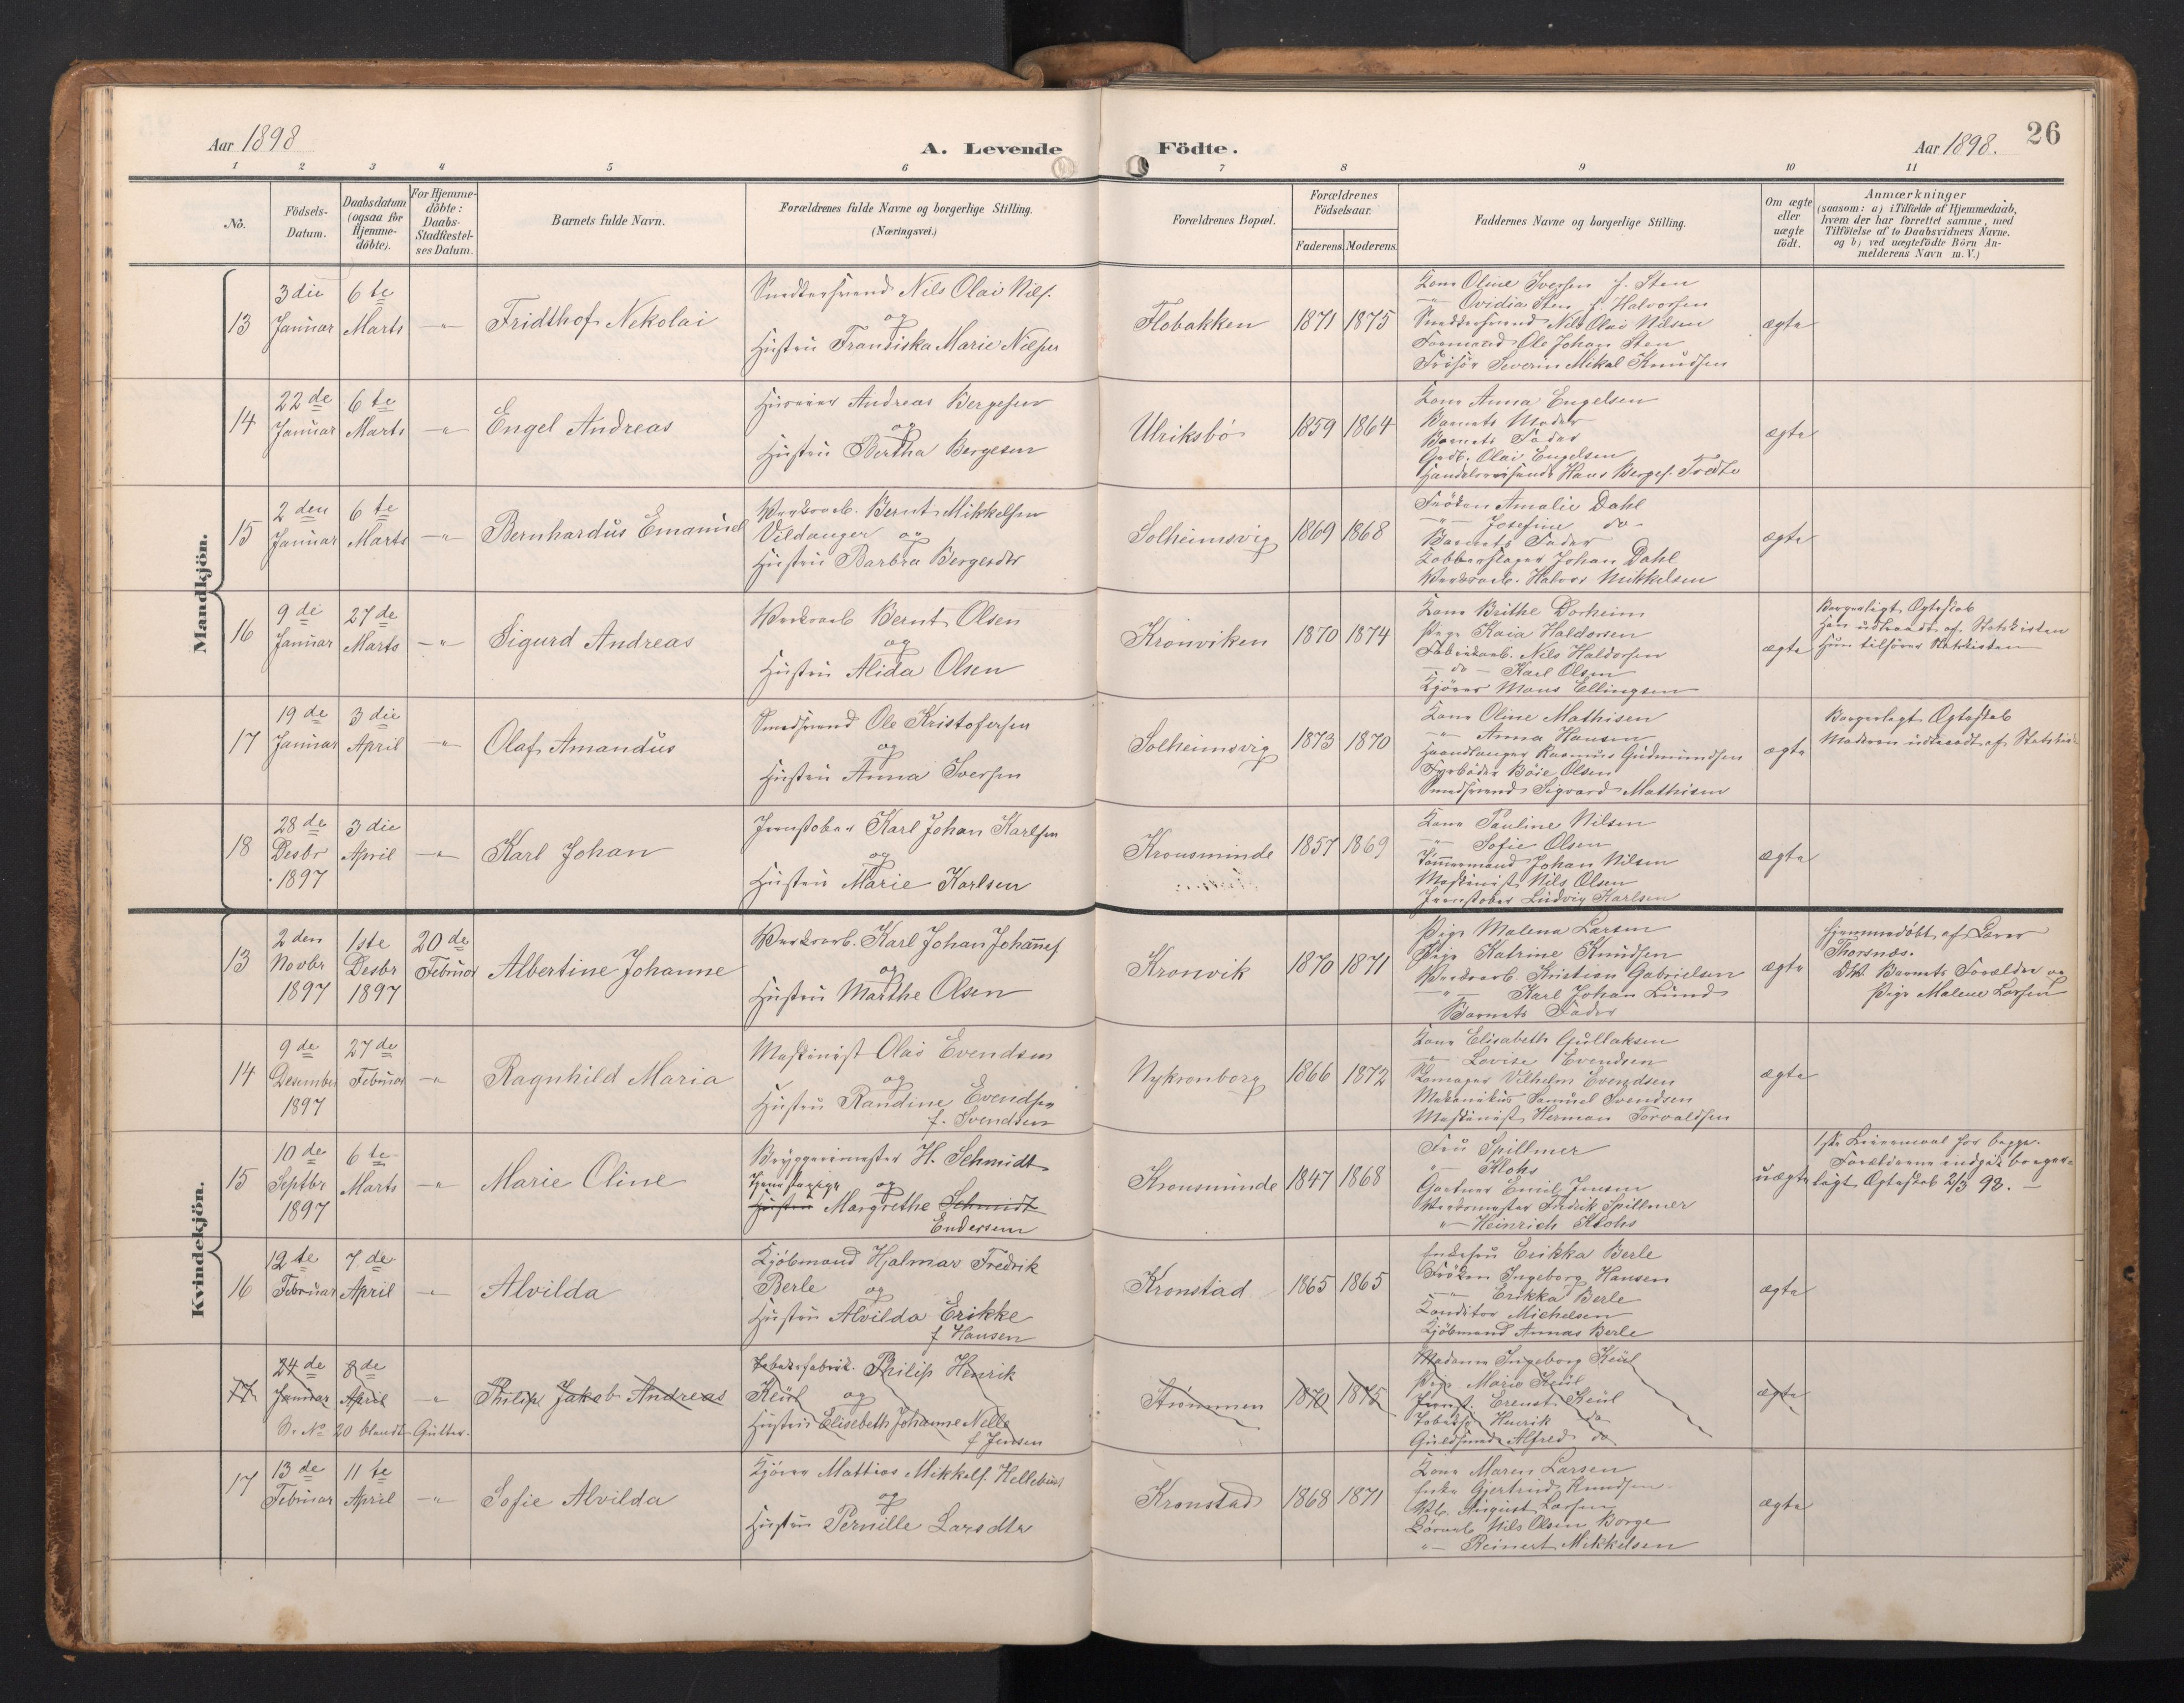 Aar 1898
A. Levende Födte.
Aar 1898.
26
1 2 3 4 5 6 7 8 9 10 11
No.
Födsels-Datum.
Daabsdatum (ogsaa för Hjemme-döbte).
For Hjemme-döbte: Daabs-Stadfæstel-ses Datum.
Barnets fulde Navn.
Forældrenes fulde Navne og borgerlige Stilling.
(Næringsvei.)
Forældrenes Bopæl.
Forældrenes Födselsaar.
Faderens. Moderens.
Faddernes Navne og borgerlige Stilling.
Om ægte eller uægte födt.
Anmærkninger
(saasom: a) i Tilfælde af Hjemmedaab,
hvem der har forrettet samme, med
Tilföielse af to Daabsvidners Navne.
og b) ved uægtefödte Börn An-
melderens Navn m.V.)
Mandkjön.
13
3die Januar
6te Marts
Fridthof Nekolai
Nils Olai Nils.
og
Hustru Fransiska Marie Nilsen
Flobakken
1871 1875
Kone Oline Iversen f. Sten
Ovidia Sten f. Halvorsen
Nils Olai Nilsen
Formand Ole Johan Sten
Frisör Severin Mikal Knudsen
ægte
14
22de Januar
6te Marts
Engel Andreas
Andreas Bergesen
og
Hustru Bertha Bergesen
Ulriksbö
1859 1864
Kone Anna Engelsen
Barnets Moder
Barnets Fader
Olai Engelsen
Hans Berges. Tvedte
ægte
15
2den Januar
6te Marts
Bernhardus Emanuel
Verksarb. Bernt Mikkelsen
Vildanger og
Hustru Barbra Bergesdtr
Solheimsvig
1869 1868
Fröken Amalie Dahl
Josefine do
Barnets Fader
Kobberslager Johan Dahl
Verksarb. Halvor Mikkelsen
ægte
16
9de Januar
27de Marts
Sigurd Andreas
Verksarb Bernt Olsen
og
Hustru Alida Olsen
Kronviken
1870 1874
Kone Brithe Dorheim
Pige Kaia Haldorsen
Fabrikarb. Nils Haldorsen
do Karl Olsen
Kjörer Mons Ellingsen
ægte
Borgerligt Ægteskab
Han udtraadt af Statskirken
Hun tilhörer Statskirken
17
19de Januar
3die April
Olaf Amandus
Smedsvend Ole Kristofersen
og
Hustru Anna Iversen
Solheimsvig
1873 1870
Kone Oline Mathisen
Anna Hansen
Haandlanger Rasmus Gudmundsen
Fyrböder Böie Olsen
Smedsvend Sigvard Mathisen
ægte
Borgerligt Ægteskab
Moderen udtraadt af
18
28de Desbr 1897
3die April
Karl Johan
Jernstöber Karl Johan Karlsen
og
Hustru Marie Karlsen
Kronsminde
1857 1869
Kone Pauline Nilsen
Sofie Olsen
Tömmermand Johan Nilsen
Maskinist Nils Olsen
Jernstöber Ludvig Karlsen
ægte
Kvindekjön.
13
2den Novbr 1897
1ste Desbr 1897
20de Februar
Albertine Johanne
Verksarb. Karl Johan Johannes.
og
Hustru Marthe Olsen
Kronvik
1870 1871
Pige Malena Larsen
Pige Katrine Knudsen
Verksarb. Kristian Gabrielsen
Karl Johan Lund
Barnets Fader
ægte
Hjemmedöbt af Lærer
Thorsnæs.
DV. Barnets Forældre og
Pige Malene Larsen
14
9de Desember 1897
27de Februar
Ragnhild Maria
Maskinist Olai Evendsen
og
Hustru Randine Evendsen
f. Svendsen
Nykronborg
1866 1872
Kone Elisabeth Gullaksen
Lovise Evendsen
Vilhelm Evendsen
Mekanikus Samuel Svendsen
Maskinist Herman Torvaldsen
ægte
15
10de Septbr 1897
6te Marts
Marie Oline
Bryggerimester H. Schmidt
Tjenestepige og
Hustru Margrethe Schmidt
Endersen
Kronsminde
1847 1868
Fru Spillmer
Klohs
Gartner Emil Jensen
Verksmester Fredrik Spillmer
Heinrich Klohs
uægte
1ste Leiermaal for begge.
Forældrene indgik borger-
ligt Ægteskab 2/3 98.
16
12te Februar
7de April
Alvilda
Kjöbmand Hjalmar Fredrik
Berle og
Hustru Alvilda Erikke
f Hansen
Kronstad
1865 1865
Enkefru Erikka Berle
Fröken Ingeborg Hansen
Erikka Berle
Konditor Michelsen
Kjöbmand Annas Berle
ægte
17
24de Januar
8de April
Philip Jakob Andreas
Tobaksfabrik. Philip Henrik
Keül og
Hustru Elisebeth Johanne Nelle
f Jensen
Strömmen
1870 1875
Madame Ingeborg Keül
Pige Marie Keül
Erenst Keül
Henrik do
Guldsmed Alfred do
ægte
Se No 20 blandt Gutter.
17
13de Februar
11te April
Sofie Alvilda
Kjörer Mattias Mikkels. Hellebust
og
Hustru Pernille Larsdtr
Kronstad
1868 1871
Kone Maren Larsen
Enke Gjertrud Knudsen
August Larsen
Nils Olsen Borge
Reinert Mikkelsen
ægte